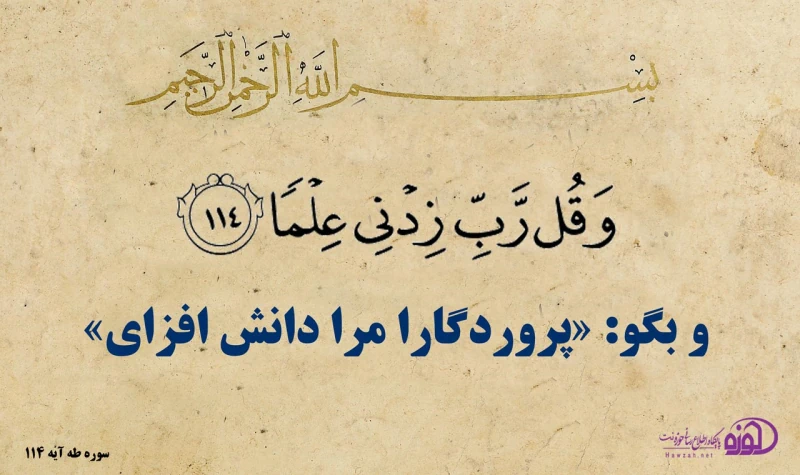 بِسْمِ اللَّهِ الرَّحْمَٰنِ الرَّحِيمِ
وَقُل رَّبِّ زِدْنِي عِلْمًا ١١٤
و بگو: «پروردگارا مرا دانش افزای»
حوزه پایگاه اطلاع رسانی حوزه نت
Hawzah.net
سوره طه آیه ۱۱۴